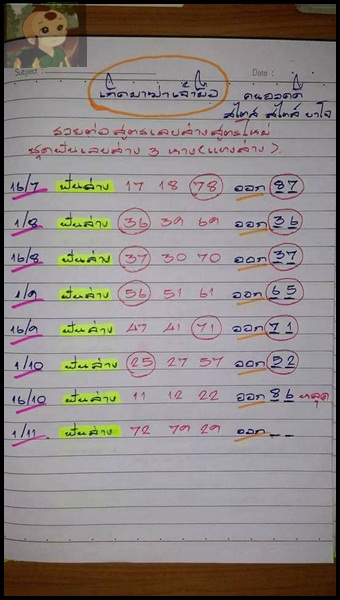 Subject : Date :
เกิดมาฆ่าเจ้ามือ คนอวดดี
สไตล์ สไตล์ ยาใจ
รวยต่อ สูตรเลขล่างสูตรใหม่
ชุดฟันเลขล่าง 3 หาง (แทงล่าง)
16/7 ฟันล่าง 17 18 78 ออก 87
1/8 ฟันล่าง 36 39 69 ออก 36
16/8 ฟันล่าง 37 30 70 ออก 37
1/9 ฟันล่าง 56 51 61 ออก 65
16/9 ฟันล่าง 47 41 71 ออก 71
1/10 ฟันล่าง 25 27 57 ออก 52
16/10 ฟันล่าง 11 12 22 ออก 86 หลุด
1/11 ฟันล่าง 72 79 29 ออก _ _